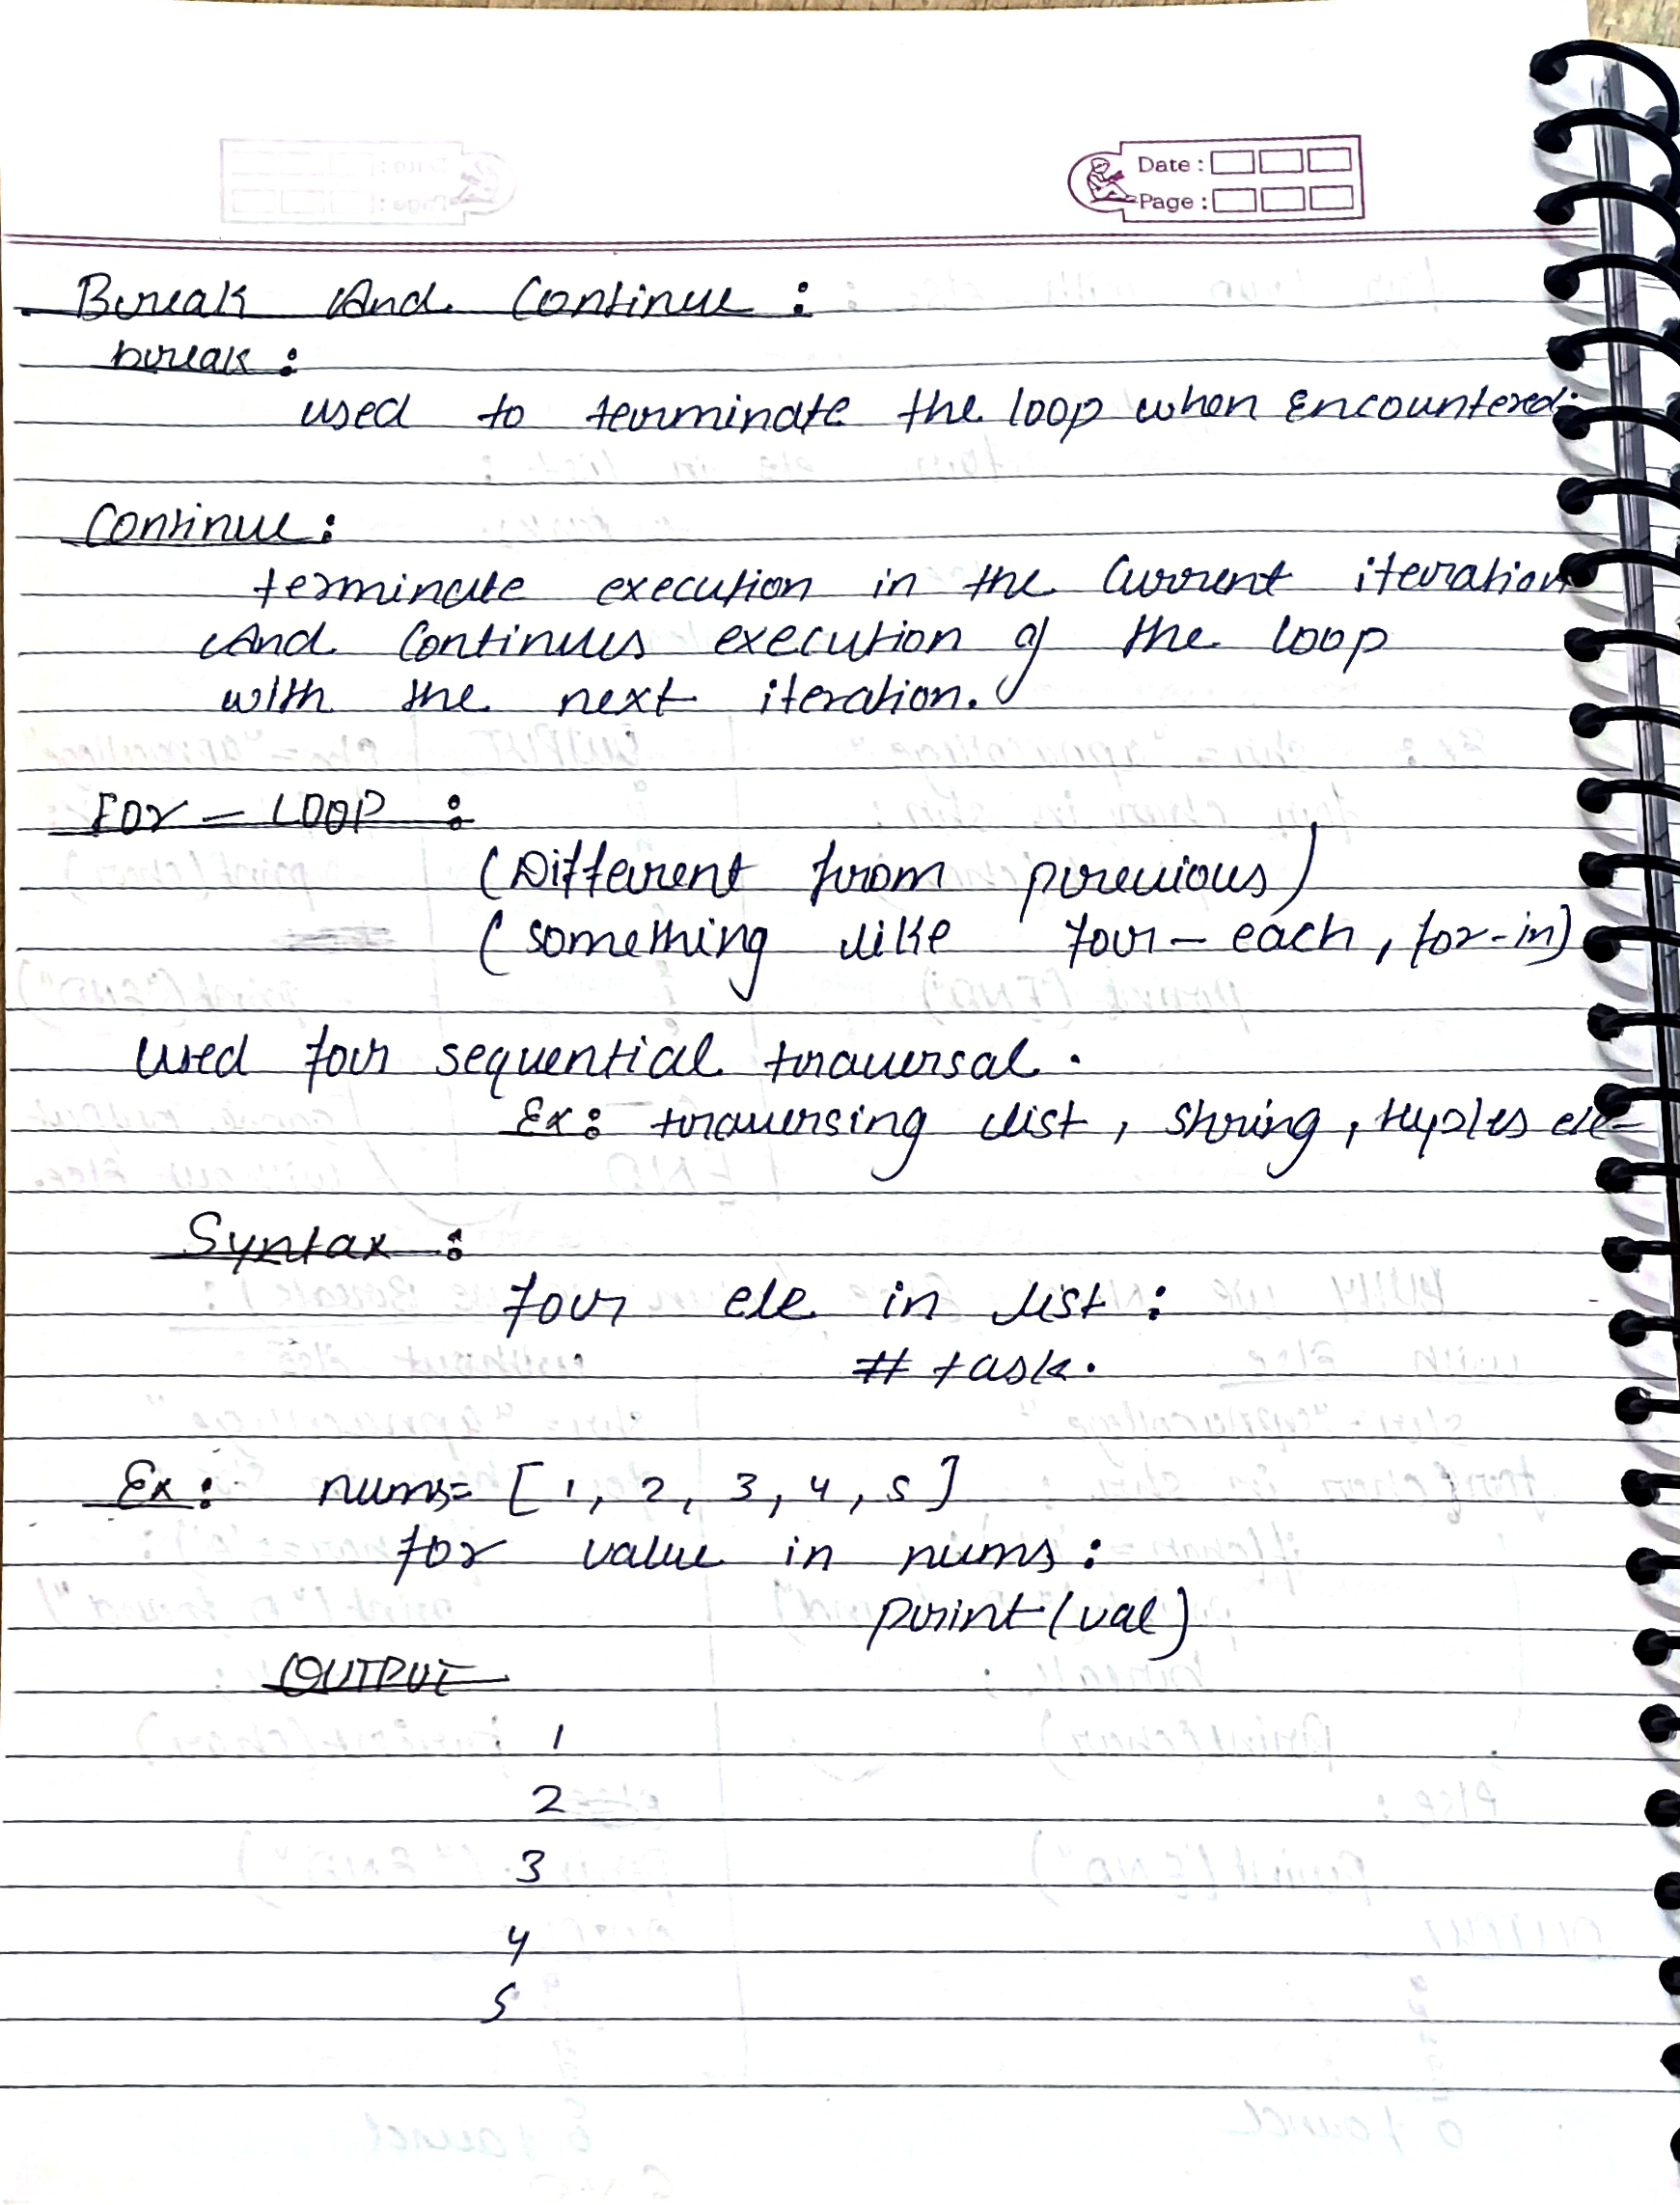 Date :
Page :
Break And Continue :
break :
used to terminate the loop when Encountered.
Continue :
terminate execution in the Current iteration
And Continues execution of the loop
with the next iteration.
For - LOOP :
(Different from previous)
(something like for - each, for-in)
Used for sequential traversal.
Ex: traversing list, string, tuples etc-
Syntax :
for ele in list :
# task.
Ex : nums= [1, 2, 3, 4, 5]
for value in nums :
print(val)
OUTPUT
1
2
3
4
5